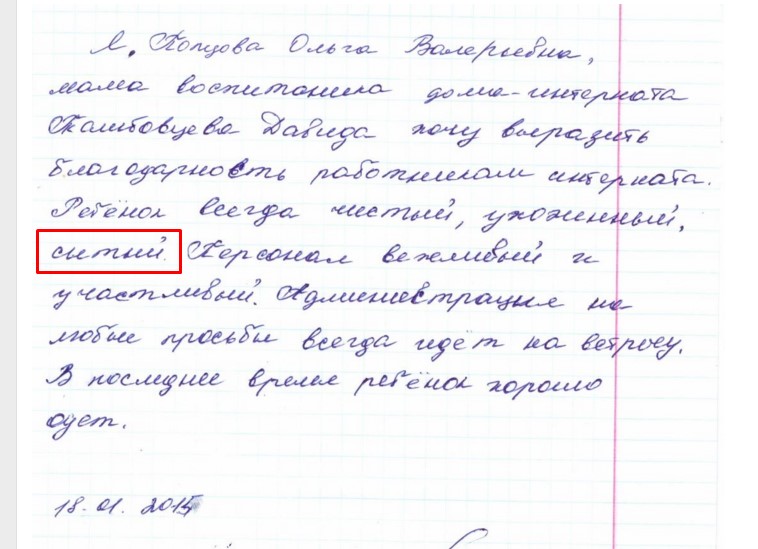 Я, Копцова Ольга Валерьевна,
мама воспитанника дома-интерната
Тамбовцева Давида хочу выразить
благодарность работникам интерната.
Ребёнок всегда чистый, ухоженный,
сытый. Персонал вежливый и
участливый. Администрация на
любые просьбы всегда идёт на встречу.
В последнее время ребёнок хорошо
одет.
18.01.2015